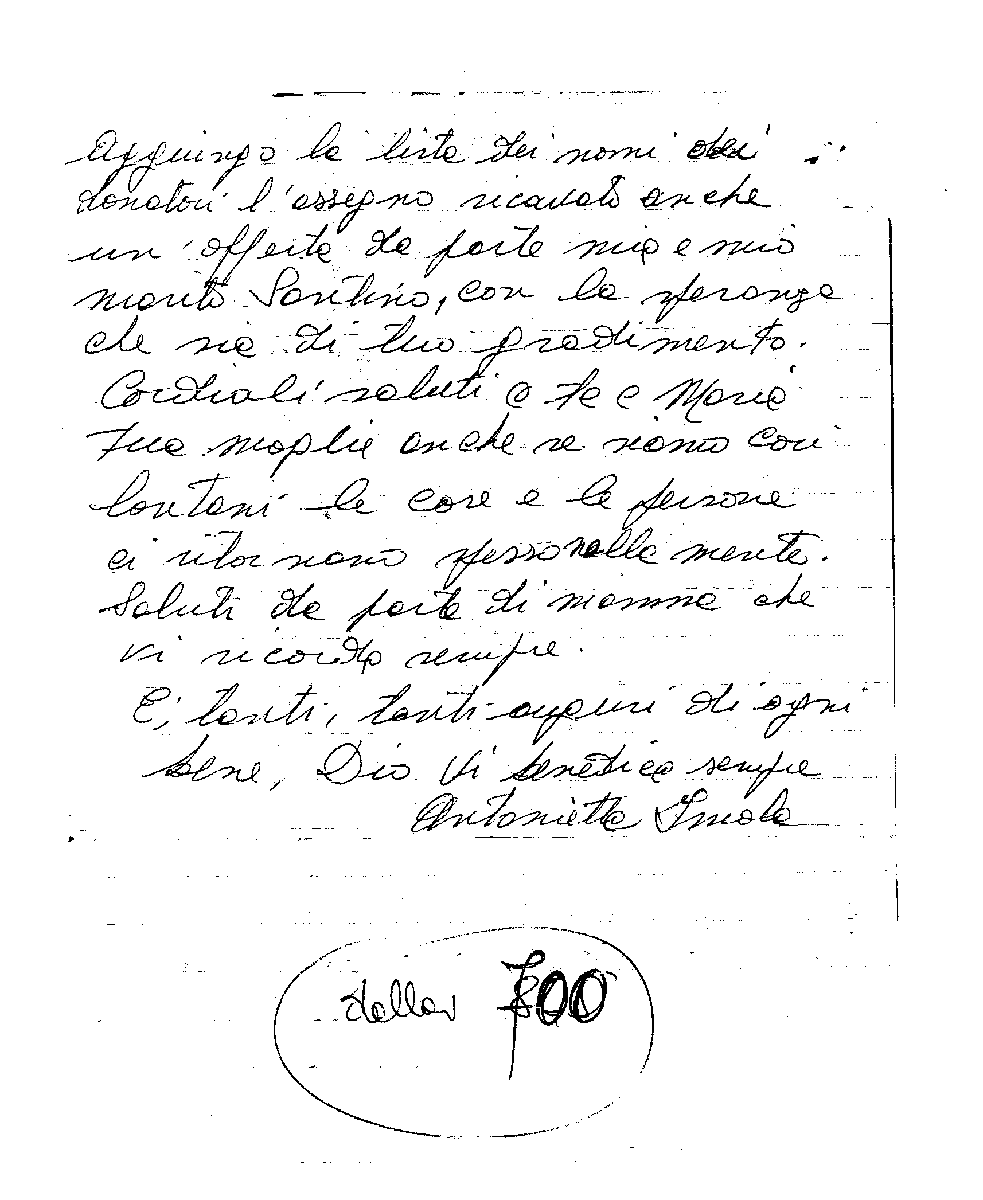 Aggiungo la lista dei nomi dei
donatori l'assegno ricavato anche
un'offerta da parte mia e mio
marito Santino, con la speranza
che sia di tuo gradimento.
Cordiali saluti a te e Maria
tua moglie anche se siamo così
lontani le cose e le persone
ci ritornano spesso nella mente.
Saluti da parte di mamma che
vi ricorda sempre.
E, tanti, tanti auguri di ogni
bene, Dio Vi benedica sempre
Antonietta
dollar 00